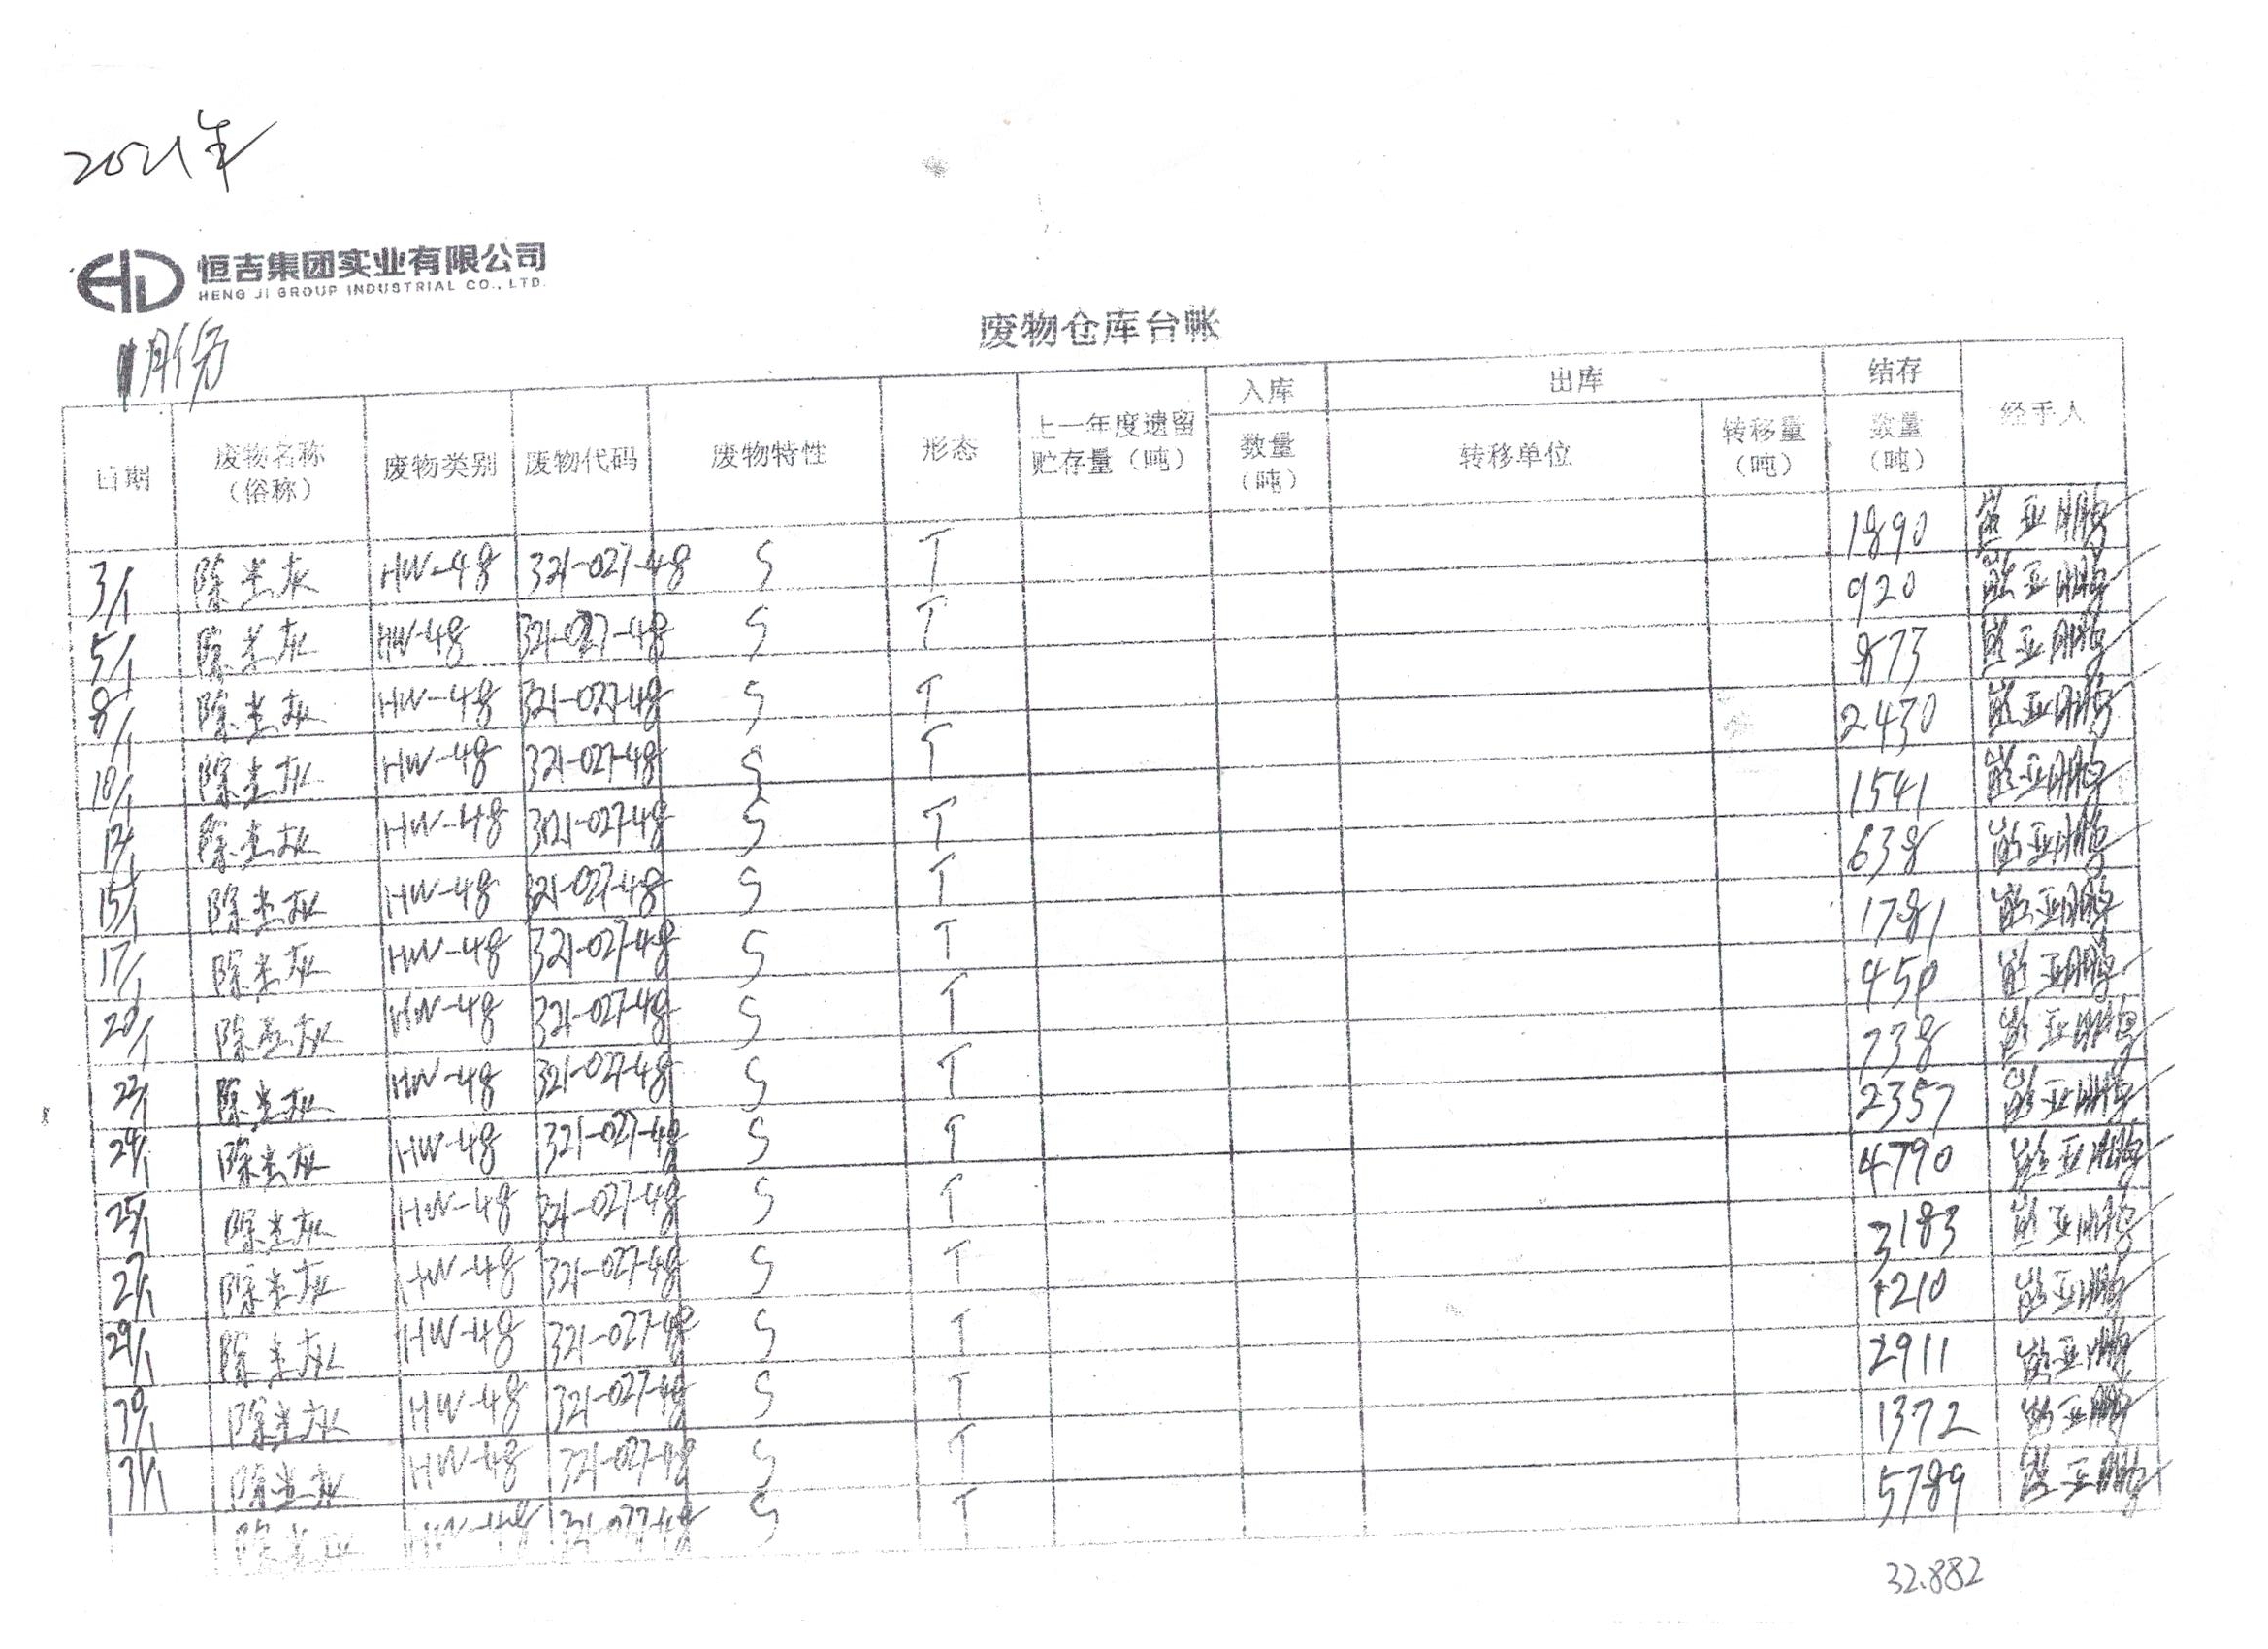 2021年
恒吉集团实业有限公司
HENG JI GROUP INDUSTRIAL CO., LTD.
1月份
废物仓库台帐
日期 废物名称（俗称） 废物类别 废物代码 废物特性 形态 上一年度遗留贮存量（吨） 入库 数量（吨） 出库 转移单位 转移量（吨） 结存 数量（吨） 经手人
3/1 除尘灰 HW-48 321-027-48 S T 1890
5/1 除尘灰 HW-48 321-027-48 S T 920
8/1 除尘灰 HW-48 321-027-48 S T 873
10/1 除尘灰 HW-48 321-027-48 S T 2430
12/1 除尘灰 HW-48 321-027-48 S T 1541
15/1 除尘灰 HW-48 321-027-48 S T 638
17/1 除尘灰 HW-48 321-027-48 S T 1781
20/1 除尘灰 HW-48 321-027-48 S T 450
除尘灰 HW-48 321-027-48 S T 738
24/1 除尘灰 HW-48 321-027-48 S T 2357
25/1 除尘灰 HW-48 321-027-48 S T 4790
27/1 除尘灰 HW-48 321-027-48 S T 3183
29/1 除尘灰 HW-48 321-027-48 S T 1210
30/1 除尘灰 HW-48 321-027-48 S T 2911
31/1 除尘灰 HW-48 321-027-48 S T 1372
除尘灰 HW-48 321-027-48 S T 5789
32.882